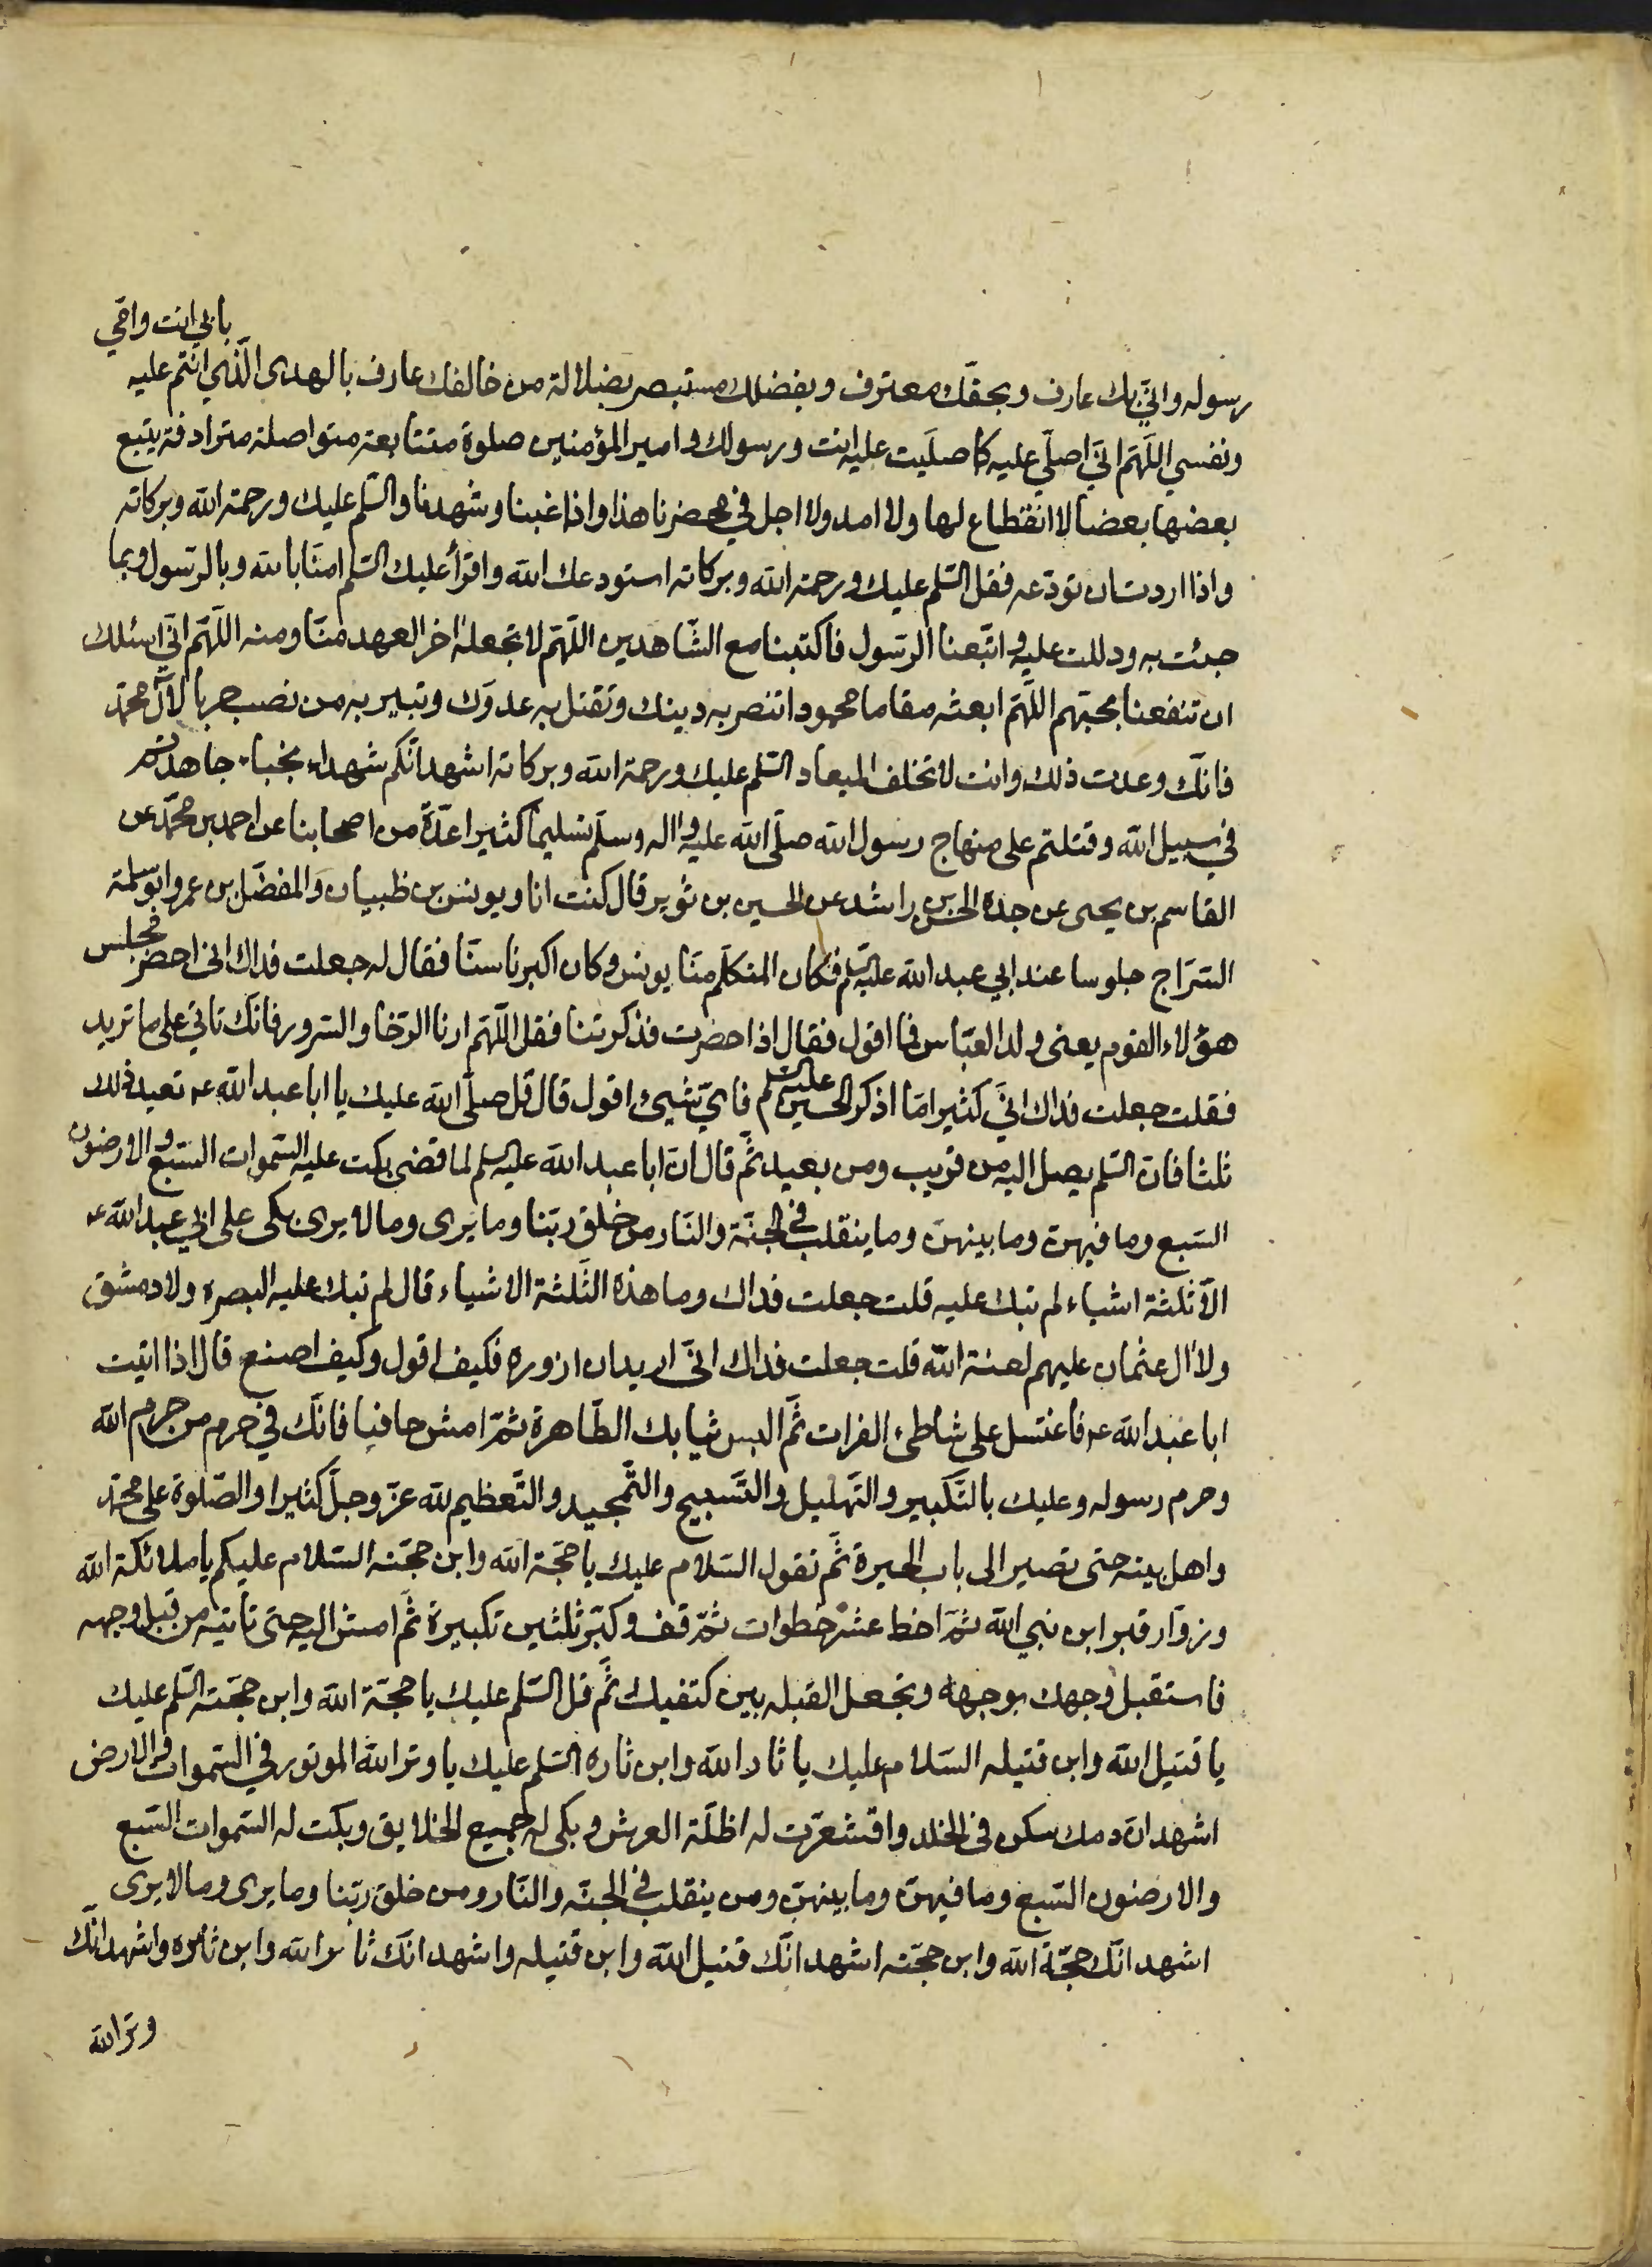 بابي انت وامّي
رسوله وانّي بك عارف وبحقّك معترف وبفضلك مستبصر بضلالة من خالفك عارف بالهدى الّذي انتم عليه
ونفسي اللّهمّ انّي اصلّي عليه كما صلّيت عليه انت ورسولك وامير المؤمنين صلوة متتابعة متواصلة مترادفة يتبع
بعضها بعضا لا انقطاع لها ولا امد ولا اجل في محضرنا هذا واذا غبنا وشهدنا والسّلم عليك ورحمة الله وبركاته
واذا اردت ان تودّعه فقل السّلم عليك ورحمة الله وبركاته استودعك الله واقرأ عليك السّلم امنّا بالله وبالرّسول وبما
جئت به ودللت عليه واتّبعنا الرّسول فاكتبنا مع الشّاهدين اللّهمّ لا تجعله اخر العهد منّا ومنه اللّهمّ انّي اسئلك
ان تنفعنا بحبّهم اللّهمّ ابعثه مقاما محمودا تنصر به دينك وتقتل به عدوّك وتبير به من نصب حربا لآل محمّد
فانّك وعدت ذلك وانت لا تخلف الميعاد السّلم عليك ورحمة الله وبركاته اشهد انّكم شهداء نجباء جاهدتم
في سبيل الله وقتلتم على منهاج رسول الله صلّى الله عليه واله وسلّم تسليما كثيرا عدّة من اصحابنا عن احمد بن محمّد عن
القاسم بن يحيى عن جدّه الحسن بن راشد عن الحسين بن ثوير قال كنت انا ويونس بن ظبيان والمفضّل بن عمر وابو سلمة
السّرّاج جلوسا عند ابي عبد الله عليه السّلم فكان المتكلّم منّا يونس وكان اكبرنا سنّا فقال له جعلت فداك انى احضر مجلس
هؤلاء القوم يعنى ولد العبّاس فما اقول فقال اذا حضرت فذكرتنا فقل اللّهمّ ارنا الرّخا والسّرور فانّك تاتي على ما تريد
فقلت جعلت فداك انّي كثيرا مّا اذكر الحسين عليه السّلم فايّ شيئ اقول قال قل صلّى الله عليك يا ابا عبد الله عه تعيد ذلك
ثلثا فانّ السّلم يصل اليه من قريب ومن بعيد ثمّ قال انّ ابا عبد الله عليه السّلم لما قضى بكت عليه السّموات السّبع والارضون
السّبع وما فيهنّ وما بينهنّ وما ينقلب في الجنّة والنّار من خلق ربّنا وما يرى وما لا يرى بكى على ابي عبد الله عه
الّا ثلثة اشياء لم تبك عليه قلت جعلت فداك وما هذه الثّلثة الاشياء قال لم تبك عليه البصرة ولا دمشق
ولا ال عثمان عليهم لعنة الله قلت جعلت فداك انّى اريد ان ازوره فكيف اقول وكيف اصنع قال اذا اتيت
ابا عبد الله عه فاغتسل على شاطئ الفرات ثمّ البس ثيابك الطّاهرة ثمّ امش حافيا فانّك في حرم من حرم الله
وحرم رسوله وعليك بالتّكبير والتّهليل والتّسبيح والتّمجيد والتّعظيم لله عزّ وجلّ كثيرا والصّلوة على محمّد
واهل بيته حتى تصير الى باب الحيرة ثمّ تقول السّلام عليك يا حجّة الله وابن حجّته السّلام عليكم يا ملائكة الله
وزوّار قبر ابن نبي الله ثمّ اخط عشر خطوات ثمّ قف وكبّر ثلثين تكبيرة ثمّ امش اليه حتى تأتيه من قبل وجهه
فاستقبل وجهك بوجهه وتجعل القبله بين كتفيك ثمّ قل السّلم عليك يا حجّة الله وابن حجّته السّلم عليك
يا قتيل الله وابن قتيله السّلام عليك يا ثار الله وابن ثاره السّلم عليك يا وتر الله الموتور في السّموات والارض
اشهد انّ دمك سكن في الخلد واقشعرّت له اظلّة العرش وبكى له جميع الخلايق وبكت له السّموات السّبع
والارضون السّبع وما فيهنّ وما بينهنّ ومن ينقلب في الجنّه والنّار ومن خلق ربّنا وما يرى وما لا يرى
اشهد انّك حجّة الله وابن حجّته اشهد انّك قتيل الله وابن قتيله واشهد انّك ثائر الله وابن ثائره واشهد انّك
وتر الله